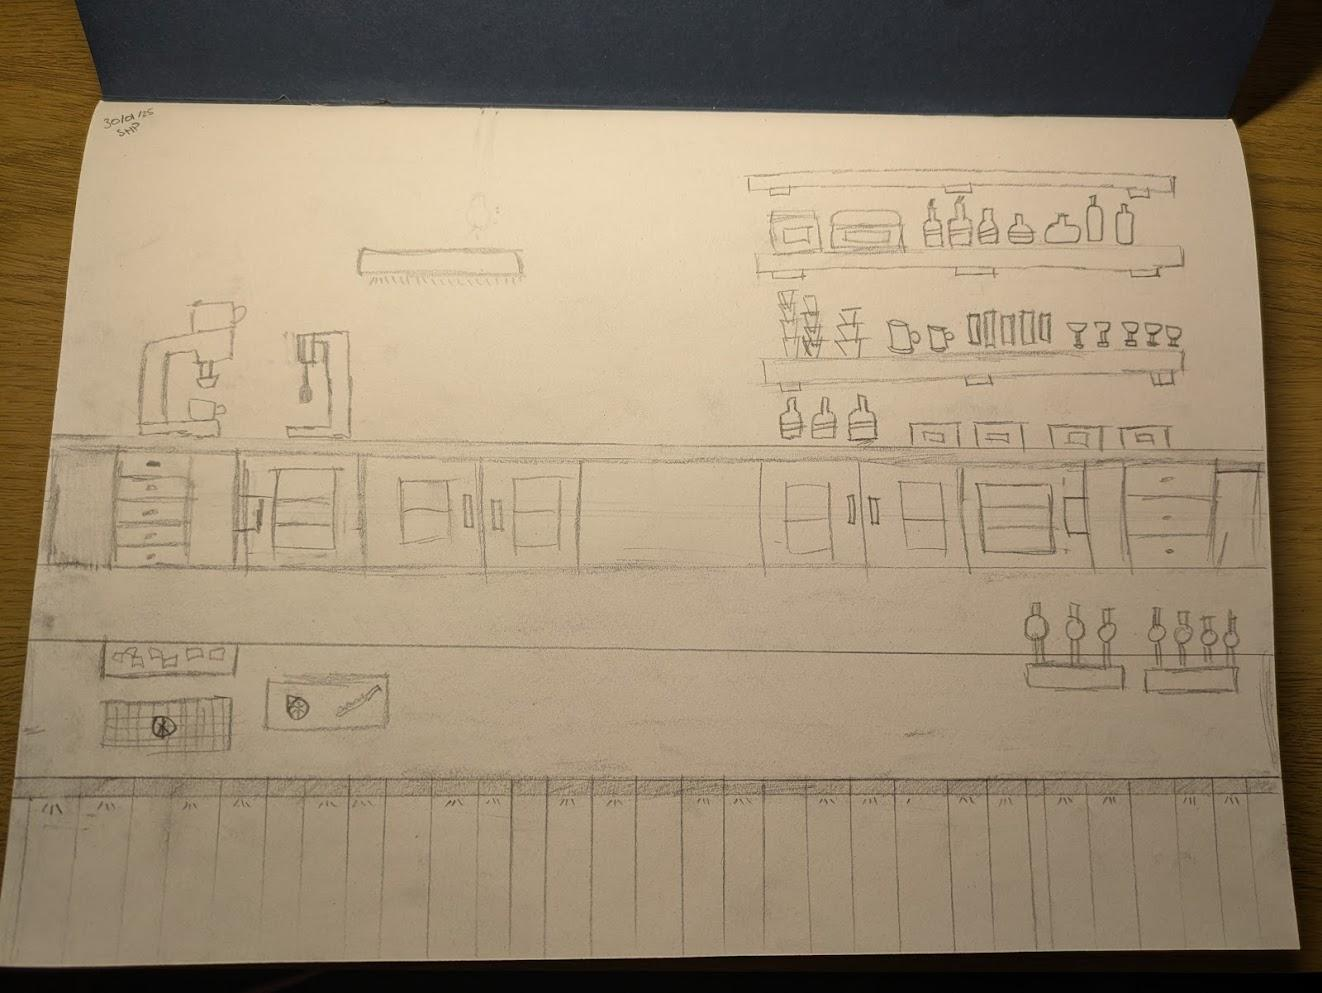 30/01/25
SMP